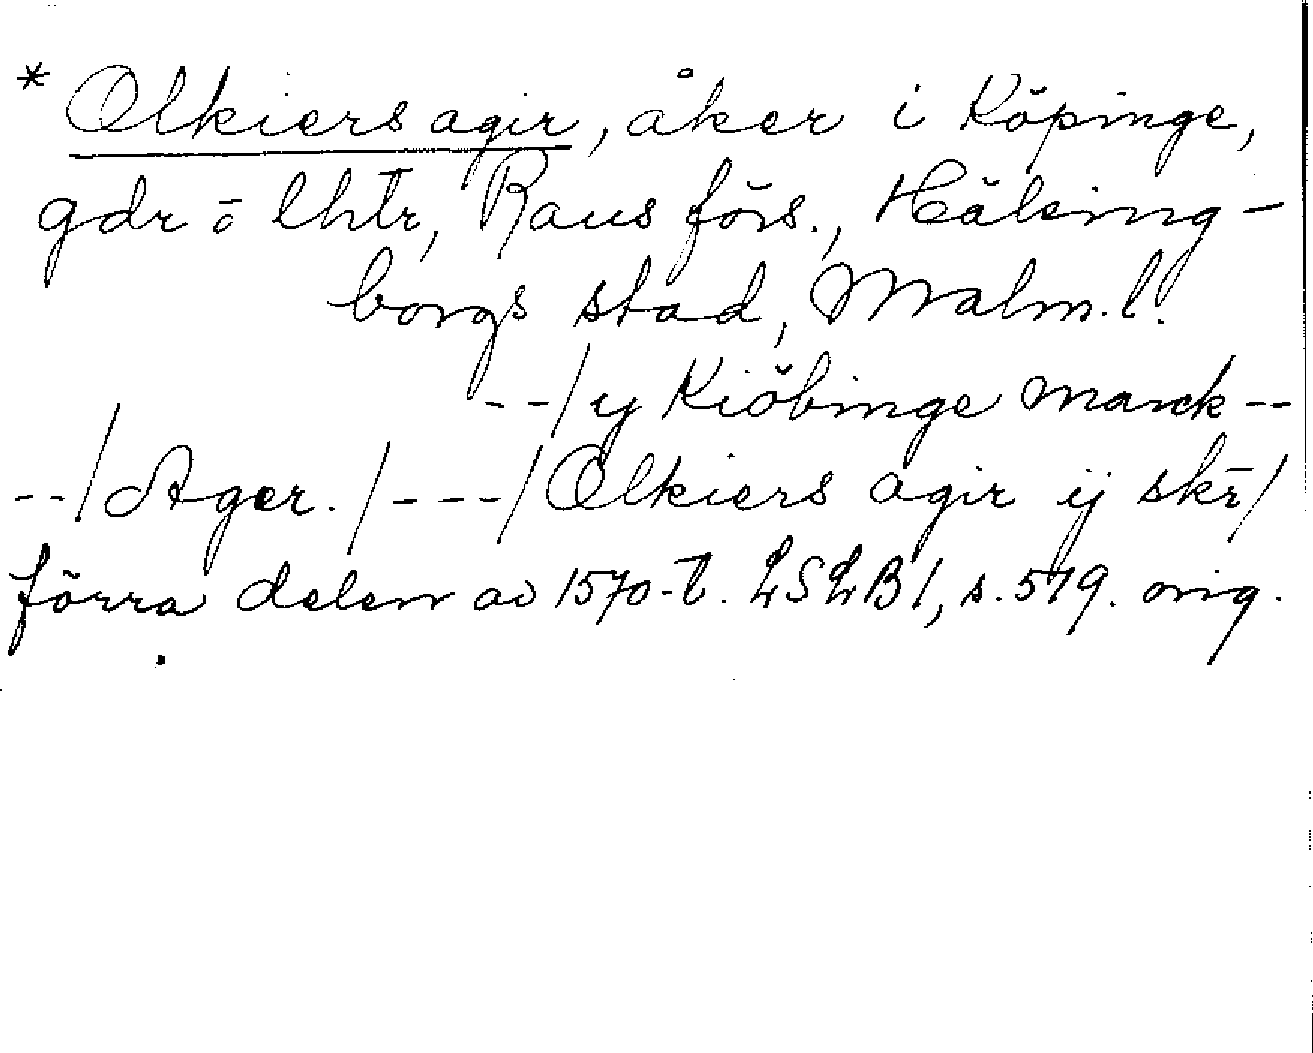 * Olkiers agir, åker i Köpinge,
gdr o̅ lhtr, Raus förs., Hälsing-
borgs stad, Malm. l.
--/ y Kiöbinge marck --
--/ Ager./---/ Olkiers agir ij skr̅/
förra delen av 1570-t. LSLB1, s. 579. orig.